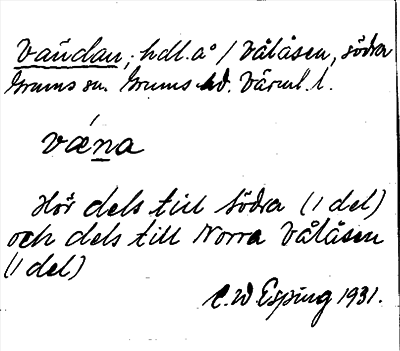 Våndan, hdl. å / Vålåsen, södra
Grums sn. Grums hd. Värml. l.
væna
Hör dels till södra (1 del)
och dels till Norra Vålåsen
(1 del)
C. W Esping 1931.